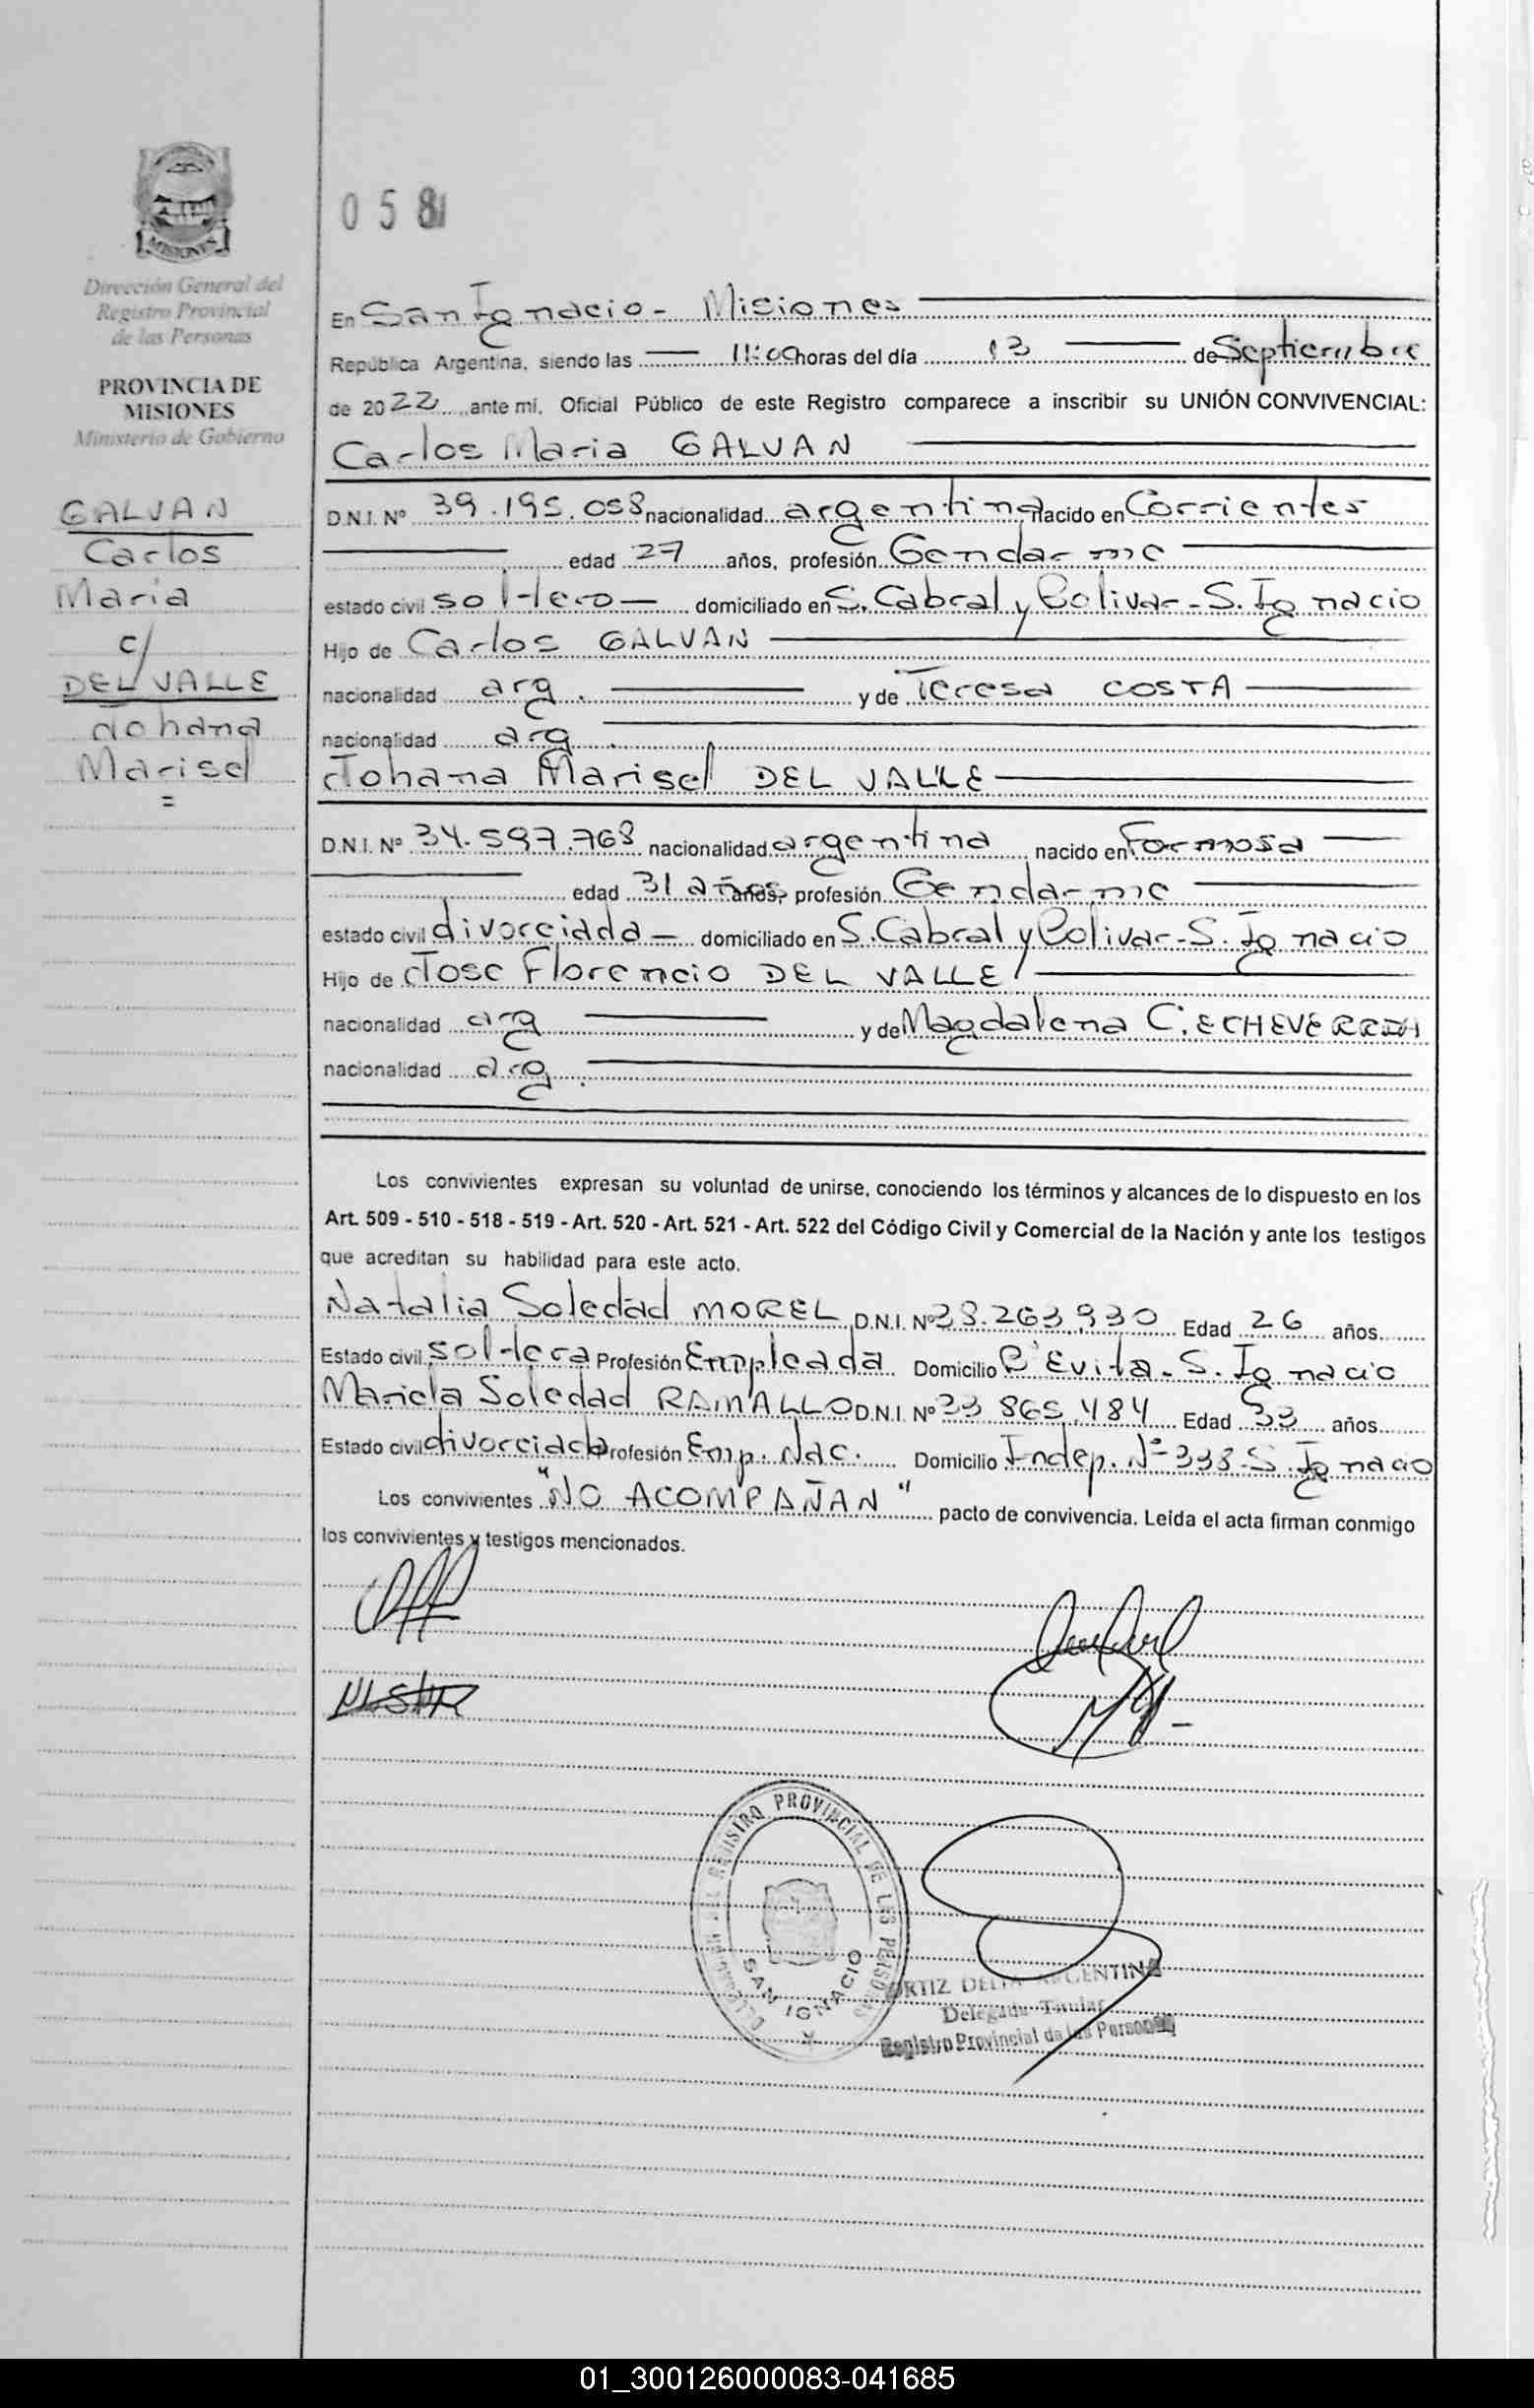 MISIONES
Dirección General del
Registro Provincial
de las Personas
PROVINCIA DE
MISIONES
Ministerio de Gobierno
GALVAN
Carlos
Maria
c/
DEL VALLE
Johana
Marisel
=
058
En San Ignacio - Misiones
República Argentina, siendo las 11:00 horas del día 13 de Septiembre
de 2022 ante mí, Oficial Público de este Registro comparece a inscribir su UNIÓN CONVIVENCIAL:
Carlos Maria GALVAN
D.N.I. Nº 39.195.058 nacionalidad argentina nacido en Corrientes
edad 27 años, profesión Gendarme
estado civil soltero domiciliado en S. Cabral y Bolivar - S. Ignacio
Hijo de Carlos GALVAN
nacionalidad arg. y de Teresa COSTA
nacionalidad arg.
Johana Marisel DEL VALLE
D.N.I. Nº 34.597.768 nacionalidad argentina nacido en Formosa
edad 31 años años, profesión Gendarme
estado civil divorciada domiciliado en S. Cabral y Bolivar - S. Ignacio
Hijo de Jose Florencio DEL VALLE
nacionalidad arg y de Magdalena C. ECHEVERRIA
nacionalidad arg.
Los convivientes expresan su voluntad de unirse, conociendo los términos y alcances de lo dispuesto en los
Art. 509 - 510 - 518 - 519 - Art. 520 - Art. 521 - Art. 522 del Código Civil y Comercial de la Nación y ante los testigos
que acreditan su habilidad para este acto.
Natalia Soledad MOREL D.N.I. Nº 38.263.930 Edad 26 años
Estado civil soltera Profesión Empleada Domicilio Bº Evita - S. Ignacio
Mariela Soledad RAMALLO D.N.I. Nº 33 865.484 Edad 33 años
Estado civil divorciada Profesión Emp. Nac. Domicilio Indep. Nº 338 - S. Ignacio
Los convivientes "NO ACOMPAÑAN" pacto de convivencia. Leída el acta firman conmigo
los convivientes y testigos mencionados.
REGISTRO PROVINCIAL DE LAS PERSONAS
SAN IGNACIO
ORTIZ DELIA ARGENTINA
Delegada Titular
Registro Provincial de las Personas
01_300126000083-041685